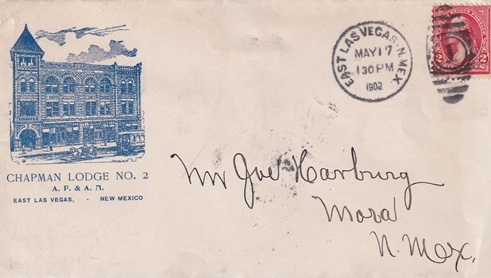 EAST LAS VEGAS, N. MEX.
MAY 17
1 30 PM
1902
2 2
CHAPMAN LODGE NO. 2
A. F. & A. M.
EAST LAS VEGAS, - NEW MEXICO
Mr Joe Harburg
Mora
N. Mex.